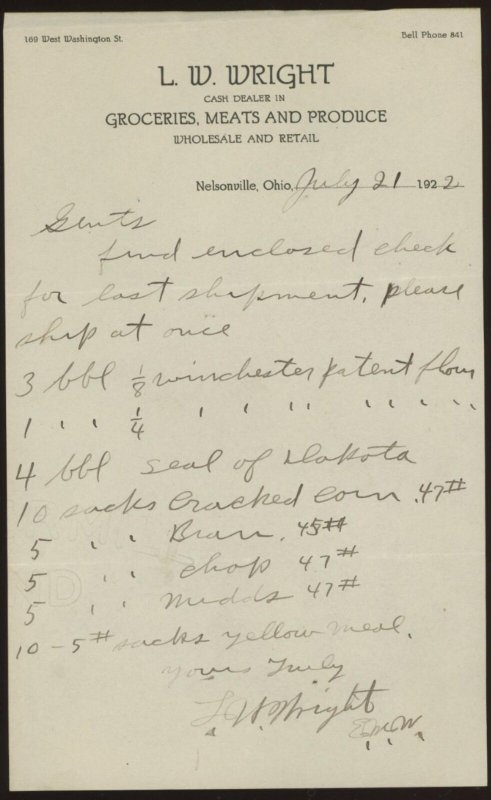 169 West Washington St.
Bell Phone 841
L. W. WRIGHT
CASH DEALER IN
GROCERIES, MEATS AND PRODUCE
WHOLESALE AND RETAIL
Nelsonville, Ohio, July 21 1922
Gents
find enclosed check
for last shipment, please
ship at once
3 bbl 1/8 winchester patent flour
1 " " 1/4 " " " " "
4 bbl seal of Dakota
10 sacks Cracked Corn . 47#
5 " " Bran . 45#
5 " " chop 47#
5 " " Midds 47#
10 - 5# sacks yellow meal.
yours Truly
L W Wright